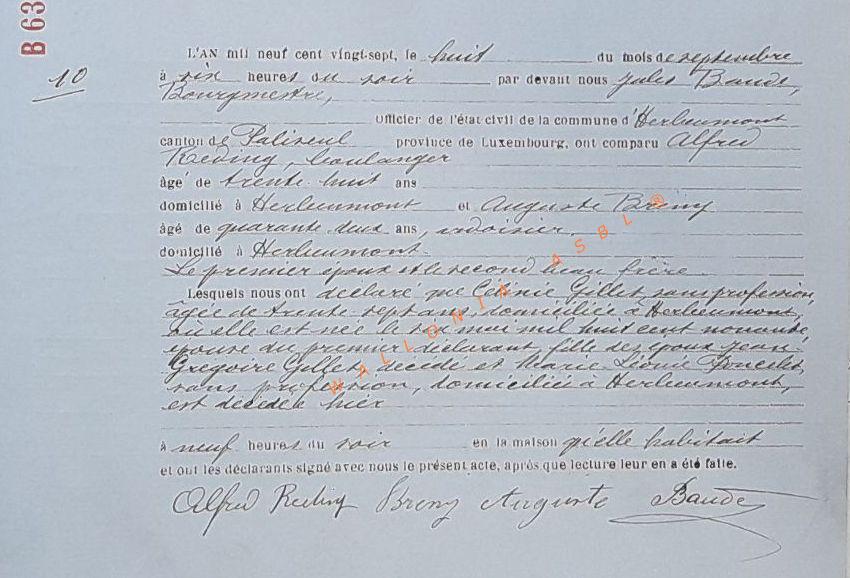 B 63
10
L'AN mil neuf cent vingt-sept, le huit du mois de septembre
à six heures du soir par devant nous Jules Baude,
Bourgmestre,
Officier de l'état civil de la commune d'Herbeumont
canton de Paliseul province de Luxembourg, ont comparu Alfred
Reding, boulanger
âgé de trente huit ans
domicilié à Herbeumont et Auguste Breny
âgé de quarante deux ans, ardoisier,
domicilié à Herbeumont.
Le premier époux et le second beau frère
Lesquels nous ont déclaré que Célinie Gillet, sans profession,
âgée de trente sept ans domiciliée à Herbeumont,
où elle est née le six mai mil huit cent nonante,
épouse du premier déclarant, fille des époux Jean-
Grégoire Gillet, décédé et Marie Léonie Poncelet,
sans profession, domiciliée à Herbeumont,
est décédée hier
à neuf heures du soir en la maison qu'elle habitait
et ont les déclarants signé avec nous le présent acte, après que lecture leur en a été faite.
Alfred Reding Breny Auguste Baude
WALLONIA ASBL ®